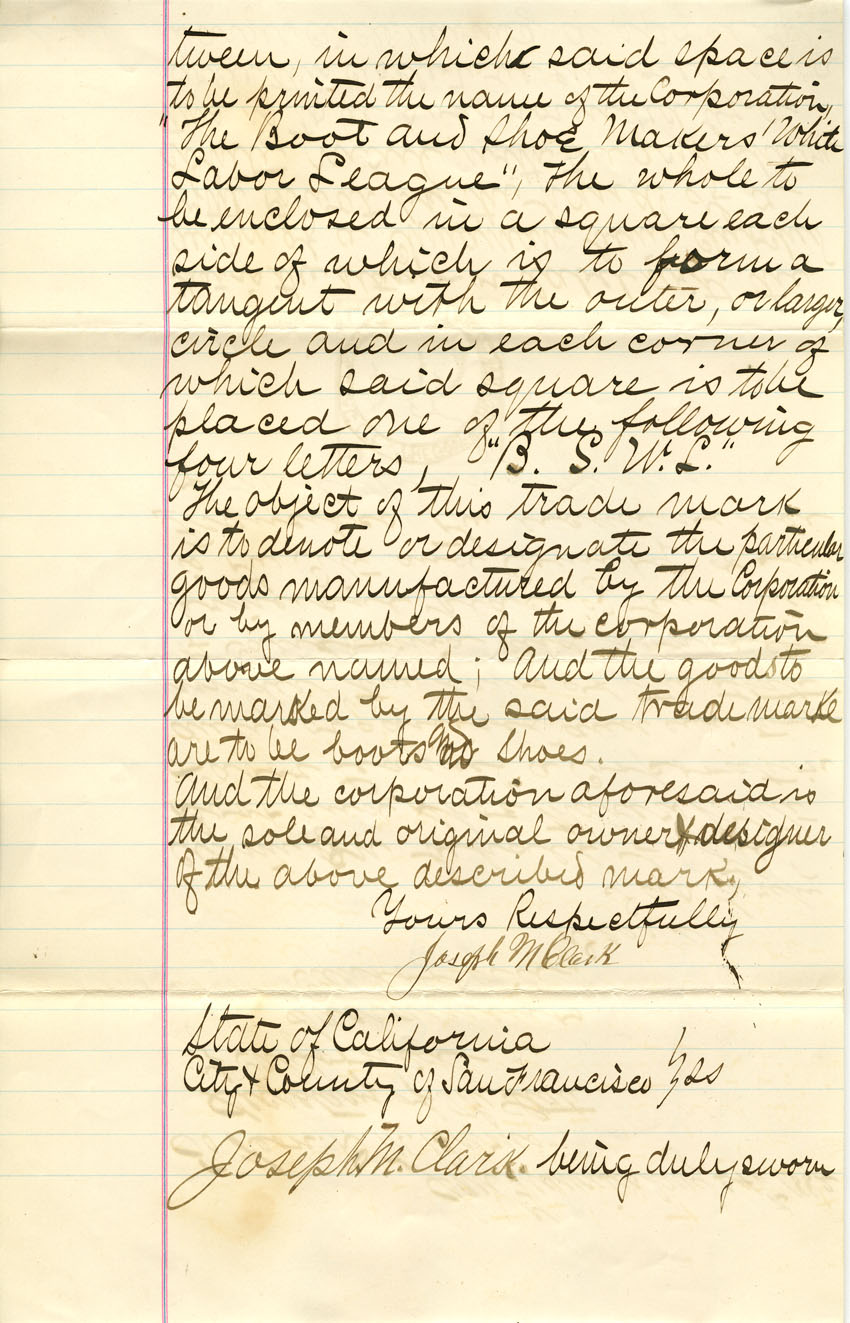 tween, in which said space is
to be printed the name of the Corporation,
"The Boot and Shoe Makers' White
Labor League", The whole to
be enclosed in a square each
side of which is to form a
tangent with the outer, or larger,
circle and in each corner of
which said square is to be
placed one of the following
four letters, "B. S. W. L."
The object of this trade mark
is to denote or designate the particular
goods manufactured by the Corporation
or by members of the corporation
above named; And the goods to
be marked by the said trade marke
are to be boots and Shoes.
And the corporation aforesaid is
the sole and original owner & designer
of the above described mark,
Yours Respectfully
Joseph M Clark
State of California
City & County of San Francisco } ss
Joseph M. Clark. being duly sworn